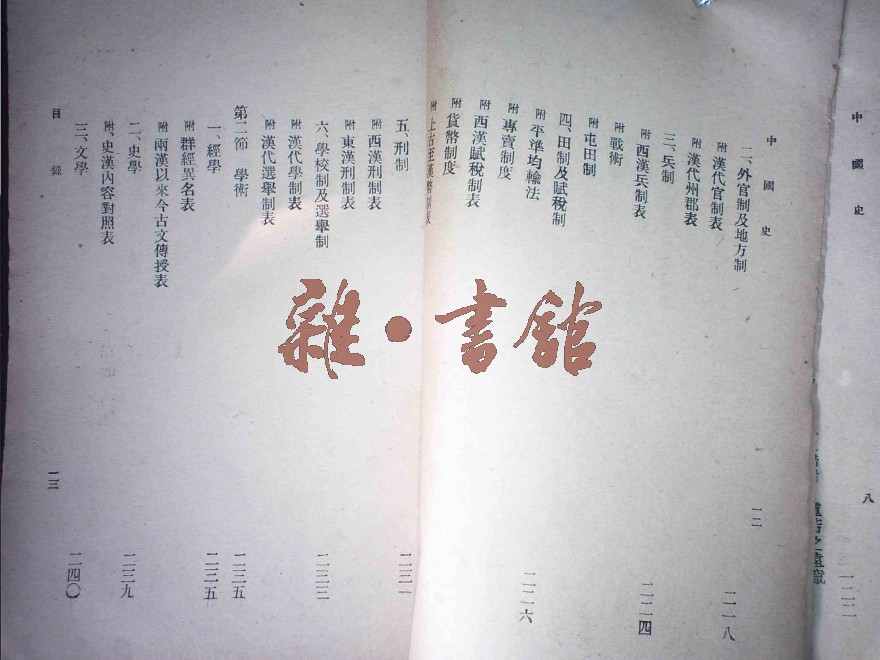 中國史
八
中國史
一二
二、外官制及地方制　二一八
附 漢代官制表
附 漢代州郡表
三、兵制　二二四
附 西漢兵制表
附 戰術
附 屯田制
四、田制及賦稅制　二二六
附 平準均輸法
附 專賣制度
附 西漢賦稅制表
附 貨幣制度
附 上古至漢幣制表
五、刑制　二三一
附 西漢刑制表
附 東漢刑制表
六、學校制及選舉制　二三三
附 漢代學制表
附 漢代選舉制表
第二節 學術　二三五
一、經學　二三五
附 群經異名表
附 兩漢以來今古文傳授表
二、史學　二三九
附、史漢內容對照表
三、文學　二四〇
目錄
一三
雜・書館